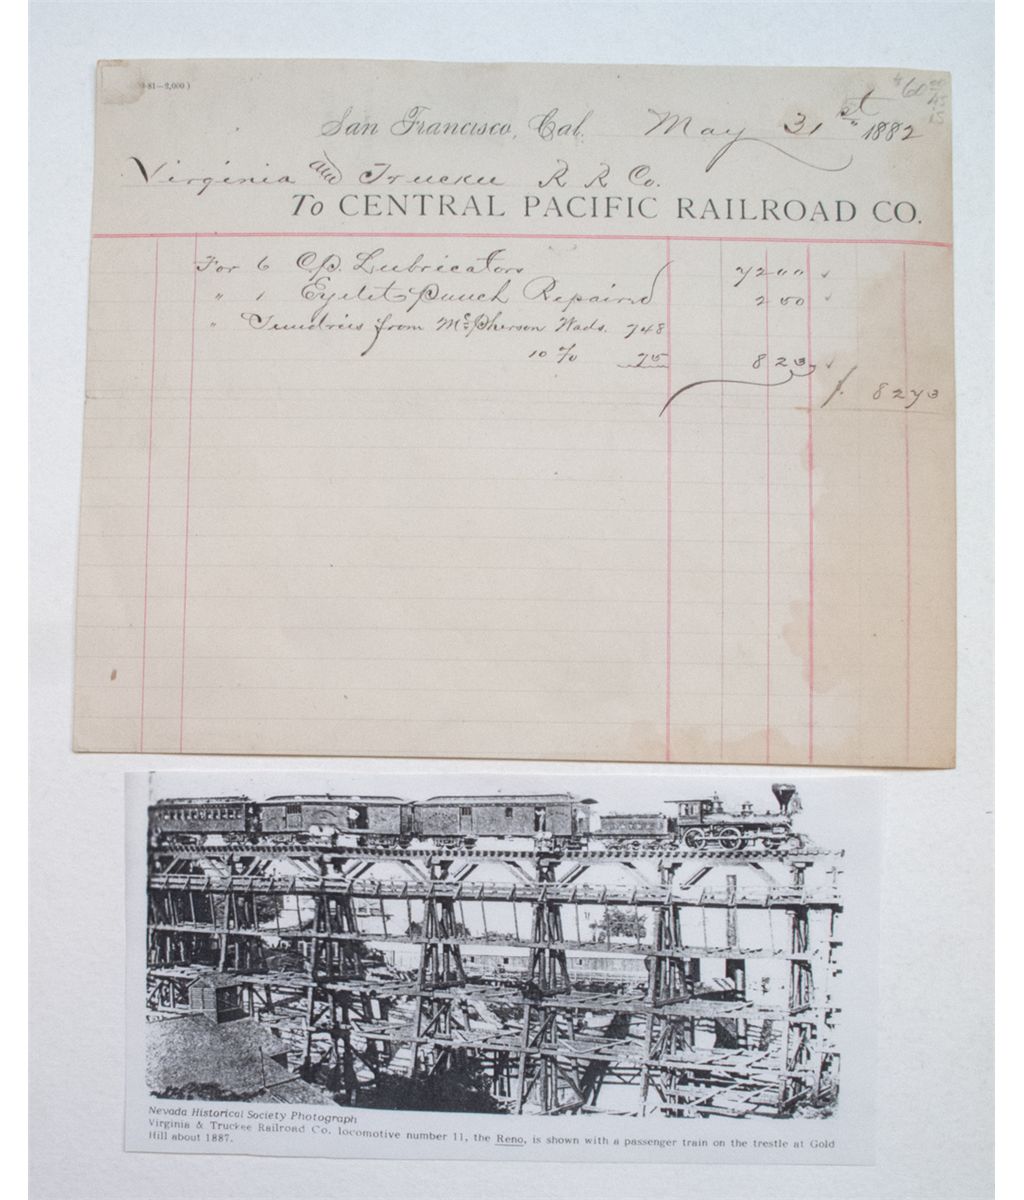 -81—2,000)
$60 00
45
15
San Francisco, Cal. May 31st 1882
Virginia and Truckee R R Co.
To CENTRAL PACIFIC RAILROAD CO.
For 6 C.p. Lubricators 72 00
" 1 Eyelet Punch Repaired 2 50
" Sundries from McPherson Wads. 7 48
10 % 75 8 23
82 73
Nevada Historical Society Photograph
Virginia & Truckee Railroad Co. locomotive number 11, the Reno, is shown with a passenger train on the trestle at Gold
Hill about 1887.